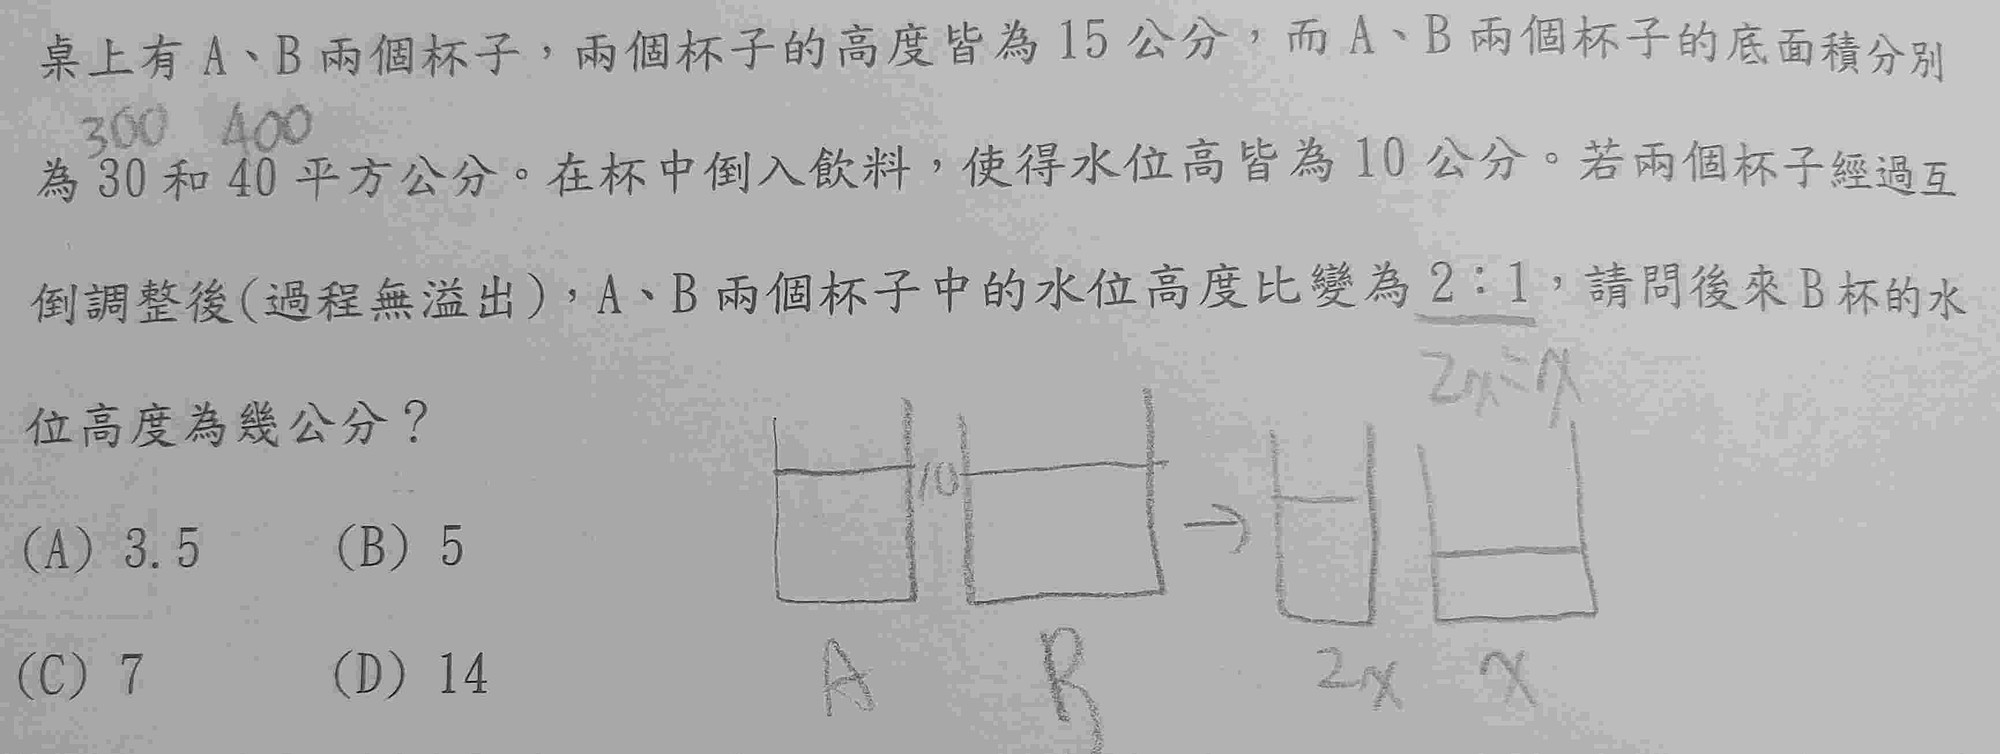 桌上有 A、B 兩個杯子，兩個杯子的高度皆為 15 公分，而 A、B 兩個杯子的底面積分別
300 400
為 30 和 40 平方公分。在杯中倒入飲料，使得水位高皆為 10 公分。若兩個杯子經過互
倒調整後(過程無溢出)，A、B 兩個杯子中的水位高度比變為 2：1，請問後來 B 杯的水
2x:x
位高度為幾公分？
10
(A) 3.5 (B) 5
(C) 7 (D) 14
A B 2x x